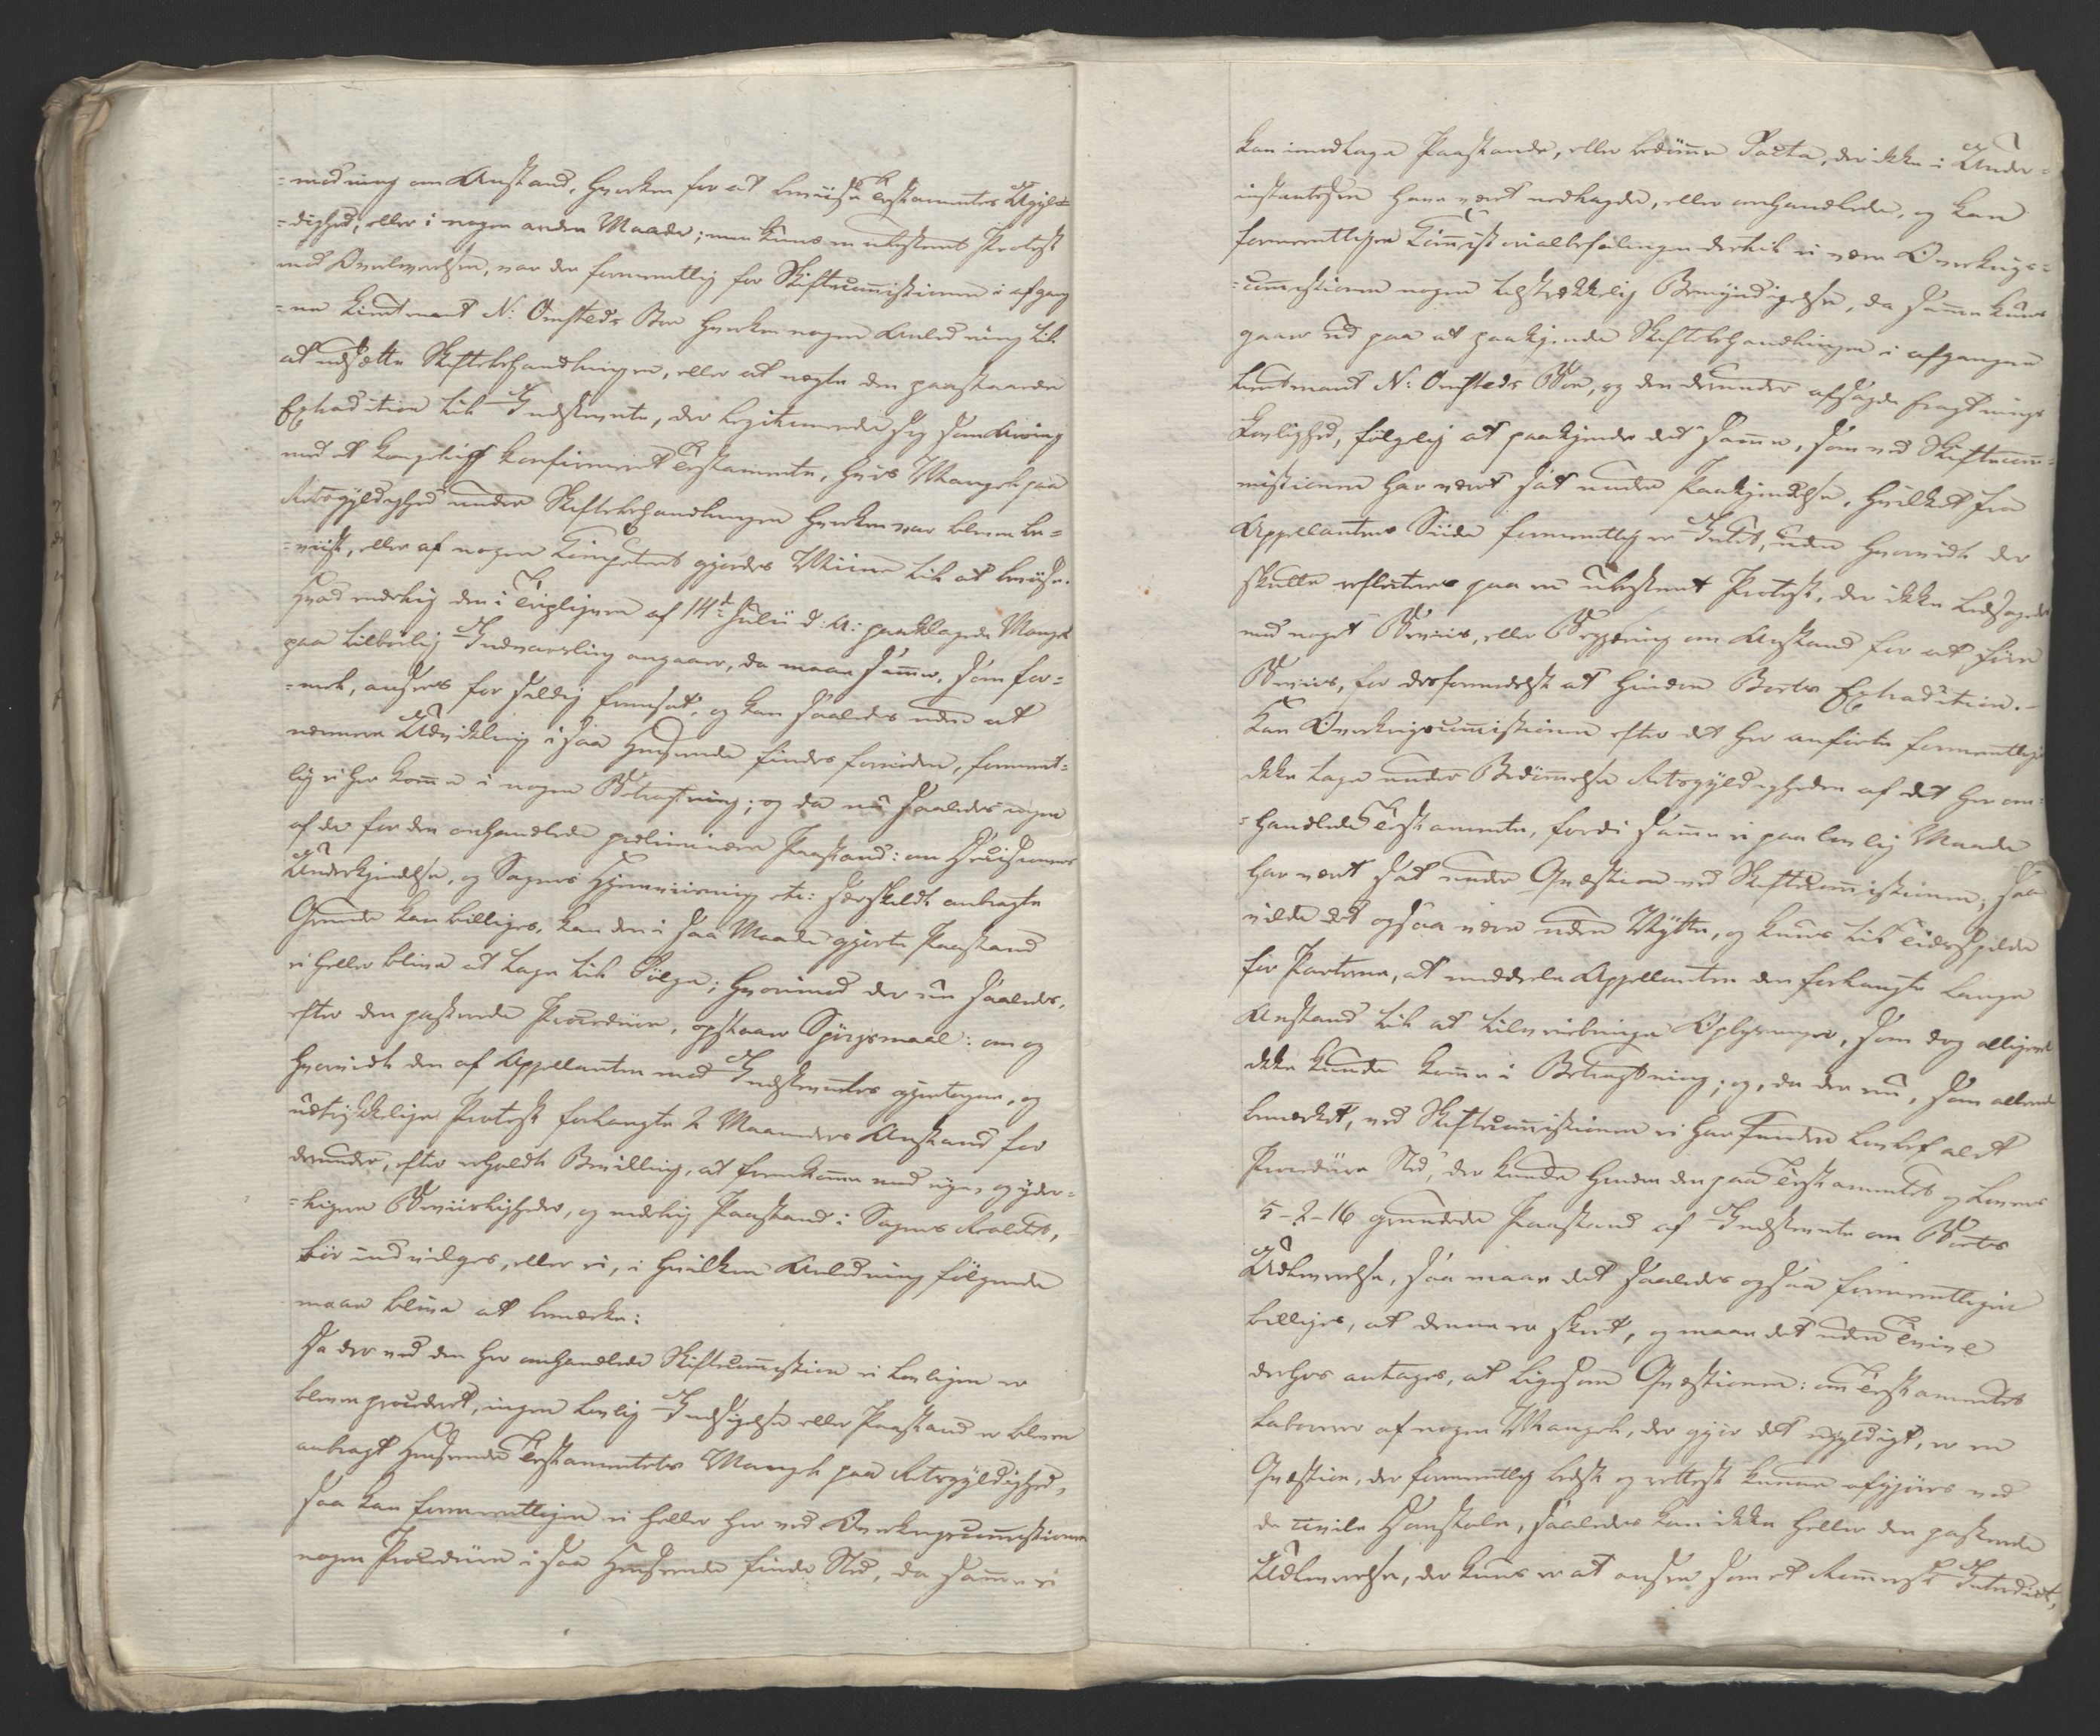 =modning om Anstand, hverken for at beviise Testamentes Ugyl=
=dighed, eller i nogen anden Maade; men kuns en ubestemt Protest
mod Overleverelsen, var der formeentlig for Skiftecommissionen i afgang=
=ne Lieutnant N: Omsteds Boe hverken nogen Anledning til
at udsætte Skiftebehandlingen, eller at nægte den paastaaede
Extradition til Indstevnte, der legitimerede sig som Arving
med et kongeligt konfirmeret Testamente, hvis Mangel paa
Retsgyldighed under Skiftebehandlingen hverken var bleven be=
=viist, eller af nogen Competent gjordes Miine til at beviise.
Hvad endelig den i Tripliquen af 14de Julii d: A: paaklagede Mangel
paa tilbørlig Indvarsling angaaer, da maae samme, som for=
=meel, ansees for sildig fremsat, og kan saaledes uden at
nærmere Udvikling i saa Henseende findes fornøden, formeent=
lig ei her komme i nogen Betragtning; og da nu saaledes ingen
af de for den omhandlede preliminaire Paastand: om Decisionens
Underkjendelse, og Sagens Hjemviisning etc: særskildt anbragte
Grunde kan billiges, kan den i saa Maade gjorte Paastand
ei heller blive at tage til Følge; hvorimod der nu saaledes,
efter den passerede Procedure, opstaaer Spørgsmaal: om og
hvorvidt den af Appellanten mod Indstevntes gjentagne, og
udtrykkelige Protest forlangte 2 Maaneders Anstand for
derunder, efter erholdt Bevilling, at fremkomme med nye, og yder=
=ligere Beviisligheder, og endelig Paastand i Sagens Realitet,
bør indvilges, eller ei, i hvilken Anledning følgende
maae blive at bemærke:
Da der ved den her omhandlede Skiftecommission ei lovligen er
bleven procederet, ingen lovlig Indsigelse eller Paastand er bleven
anbragt Henseende Testamentets Mangel paa Retsgyldighed,
saa kan formeentligen ei heller her ved Overkrigscommissionen
nogen Procedure i saa Henseende finde Sted, da samme ei
kan imodtage Paastande, eller bedømme Facta, der ikke i Under=
instantsen have været nedlagde, eller omhandlede, og kan
formeentligen Commissorialbefalingen dertil ei være Overkrigs=
=commissionen nogen tilstrækkelig Bemyndigelse, da samme kuns
gaaer ud paa at paakjende Skiftebehandlingen i afgangne
Lieutnant N: Omsteds Boe, og den derunder afsagde Fragtnings
Lovlighed, følgelig at paakjende det samme, som ved Skiftecom=
missionen har været sat under Paakjendelse, hvilket fra
Appellantens Side formeentlig er Intet, uden hvorvidt der
skulle reflecteres paa en ubestemt Protest, der ikke ledsagedes
med noget Beviis, eller Begjæring om Anstand for at føre
Beviis, for derformedelst at hindre Boets Extradition.-
Kan Overkrigscommissionen efter det her anførte formeentligen
ikke tage under Bedømmelse Retsgyldigheden af det her om=
=handlede Testamente, fordi samme ei paa lovlig Maade
har været sat under Qvæstion ved Skiftecommissionen; saa
vilde det ogsaa være uden Nytte, og kuns til Tidsspilde
for Parterne, at meddele Appellanten den forlangte lange
Anstand til at tilveiebringe Oplysninger, som dog alligevel
ikke kunde komme i Betragtning; og, da der nu, som allerede
bemærket, ved Skiftecommissionen ei har funden lovbefalet
Procedure Sted, der kunde hindre den paa Testamentet og Lovens
5-2-16 grundede Paastand af Indstevnte om Boets
Udleverelse, saa maae det saaledes ogsaa formeentligen
billiges, at denne er skeet, og maae det uden Tvivl
derhos antages, at ligesom Qvæstionen: om Testamentet
laborerer af nogen Mangel, der gjør det ugyldigt, er en
Qvæstion, der formeentlig bedst og rettest kunne afgjøres ved
de civile Domstole, saaledes kan ikke heller den passerede
Udleverelse, der kuns er at ansee som et Romersk Interdict,